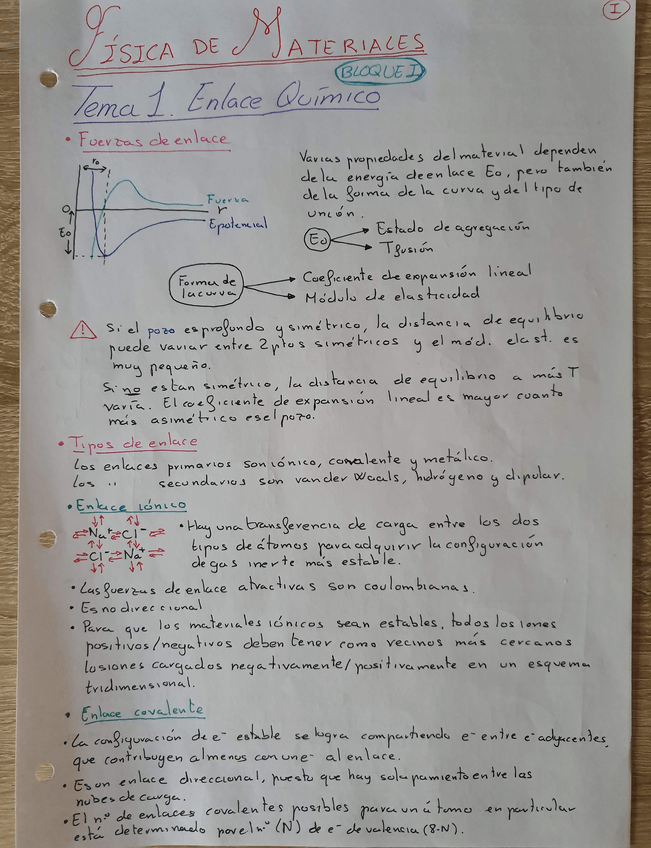 I
FÍSICA DE MATERIALES
BLOQUE I
Tema 1. Enlace Químico
• Fuerzas de enlace
r₀
Fuerza
0
r
Epotencial
E₀
Varias propiedades del material dependen
de la energía de enlace E₀, pero también
de la forma de la curva y del tipo de
unión.
E₀ → Estado de agregación
→ Tfusión
Forma de
la curva
→ Coeficiente de expansión lineal
→ Módulo de elasticidad
Si el pozo es profundo y simétrico, la distancia de equilibrio
puede variar entre 2 ptos simétricos y el mód. elast. es
muy pequeño.
Si no es tan simétrico, la distancia de equilibrio a más T
varía. El coeficiente de expansión lineal es mayor cuanto
más asimétrico es el pozo.
• Tipos de enlace
Los enlaces primarios son iónico, covalente y metálico.
Los '' secundarios son van der Waals, hidrógeno y dipolar.
• Enlace iónico
Na⁺ Cl⁻
Cl⁻ Na⁺
• Hay una transferencia de carga entre los dos
tipos de átomos para adquirir la configuración
de gas inerte más estable.
• Las fuerzas de enlace atractivas son coulombianas.
• Es no direccional
• Para que los materiales iónicos sean estables, todos los iones
positivos/negativos deben tener como vecinos más cercanos
los iones cargados negativamente/positivamente en un esquema
tridimensional.
• Enlace covalente
• La configuración de e⁻ estable se logra compartiendo e⁻ entre e⁻ adyacentes,
que contribuyen al menos con un e⁻ al enlace.
• Es un enlace direccional, puesto que hay solapamiento entre las
nubes de carga.
• El n.º de enlaces covalentes posibles para un átomo en particular
está determinado por el n.º (N) de e⁻ de valencia (8-N).